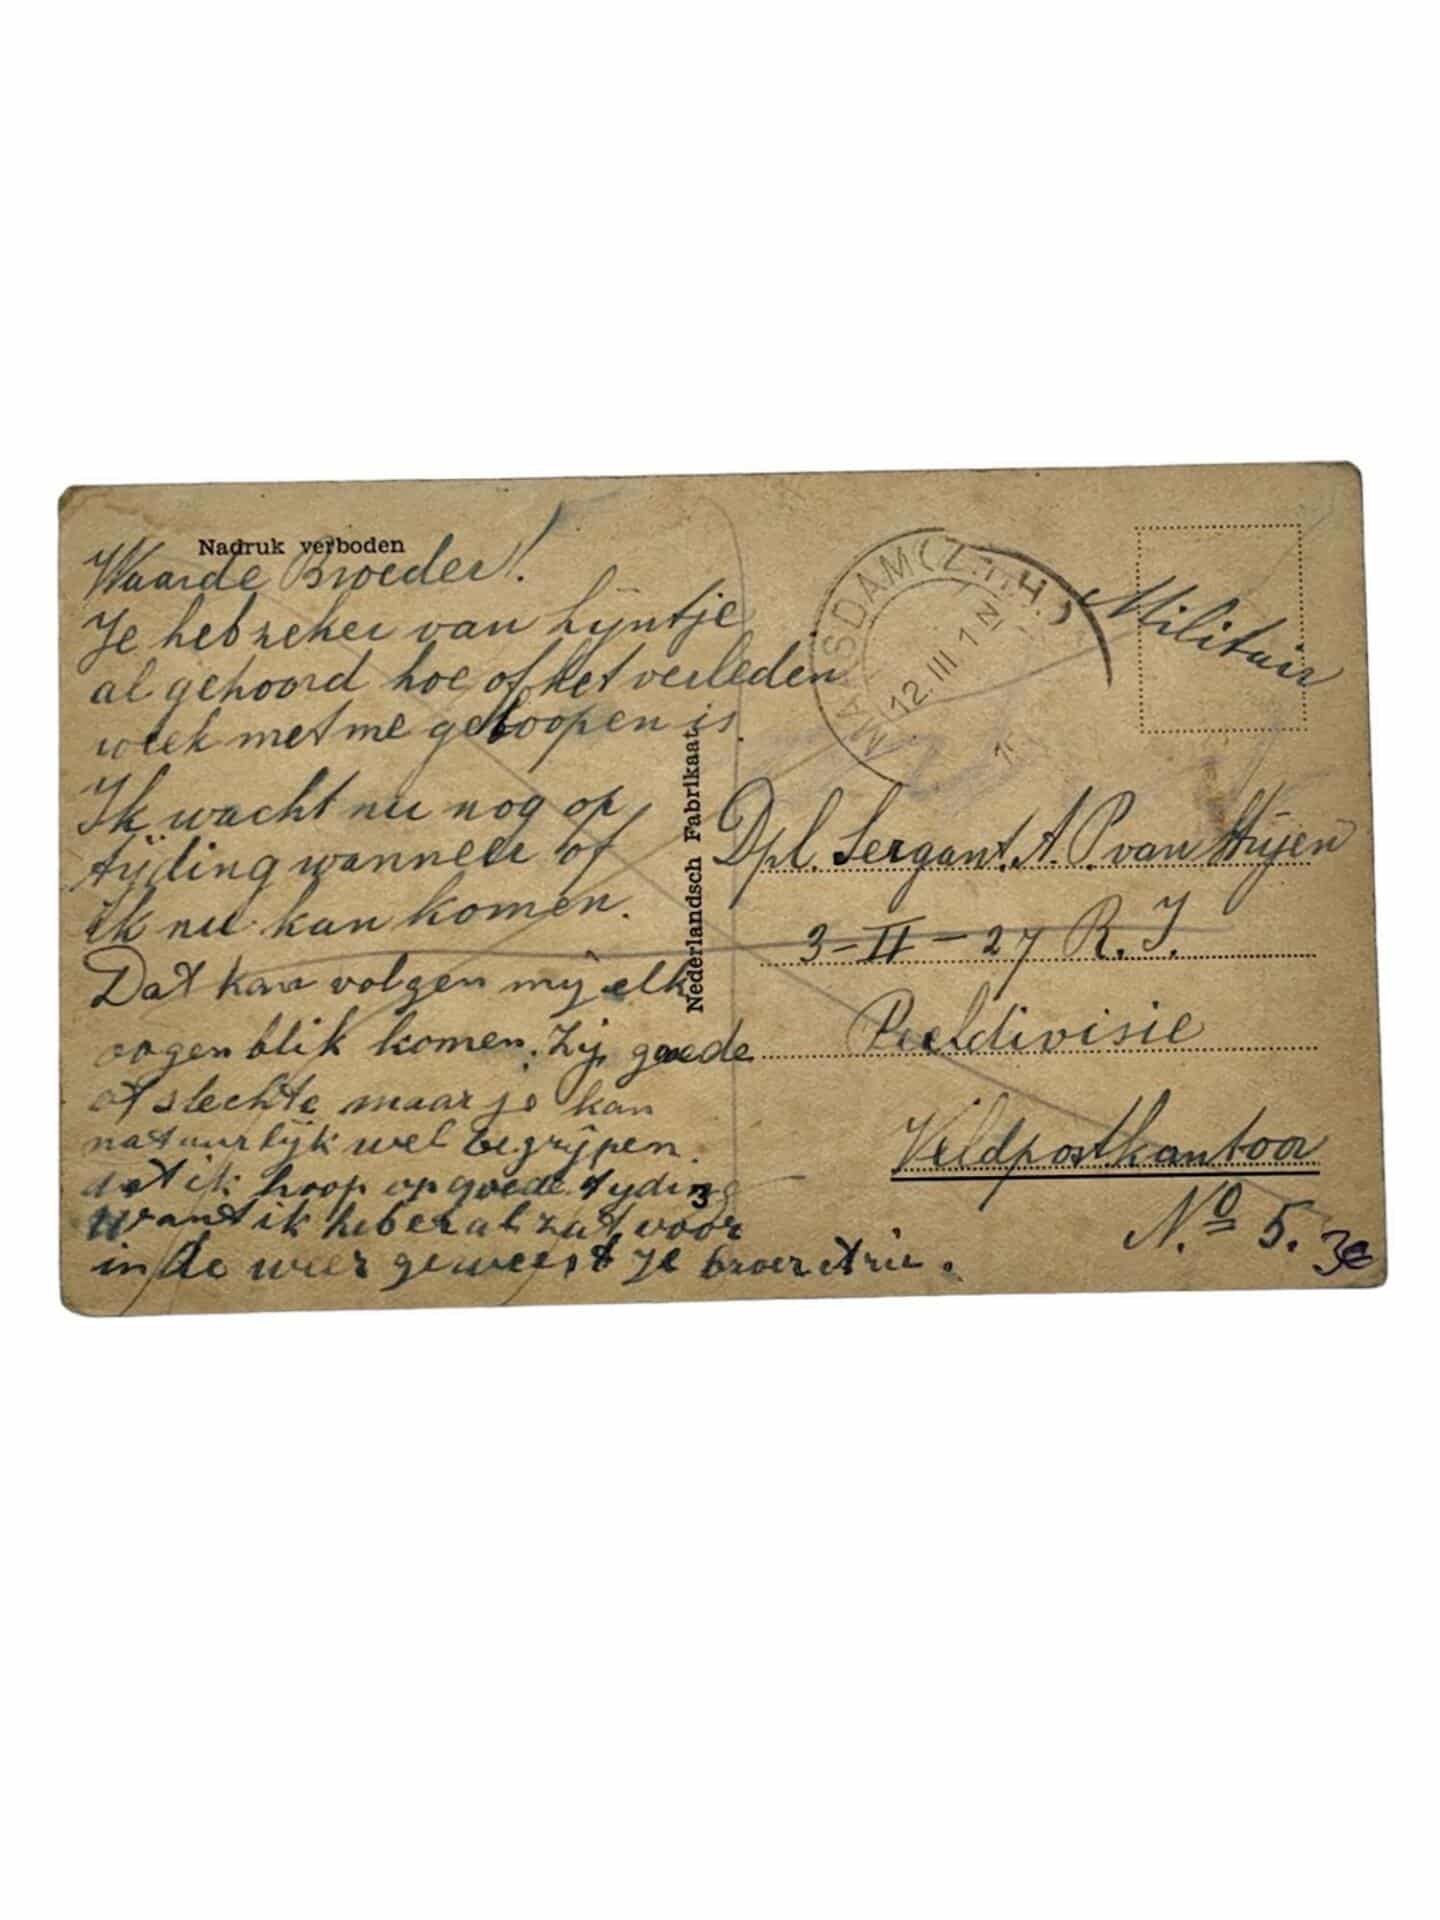 Nadruk verboden
Waarde Broeder!
Je heb zeker van Lijntje
al gehoord hoe of het verleden
week met me geloopen is.
Ik wacht nu nog op
tijding wanneer of
ik nu kan komen.
Dat kan volgen mij elk
oogenblik komen. Zij goede
of slechte maar je kan
natuurlijk wel begrijpen.
dat ik hoop op goede tyding
want ik heb er al zat voor
in de weer geweest Je broer Arie.
Nederlandsch Fabrikaat
3
MAASDAM (Z.H.)
12.III 1 N
1
Militair
Dpl. Sergant. A. P. van Strijen
3-II-27 R. I.
Peeldivisie
Veldpostkantoor
No 5.
3e